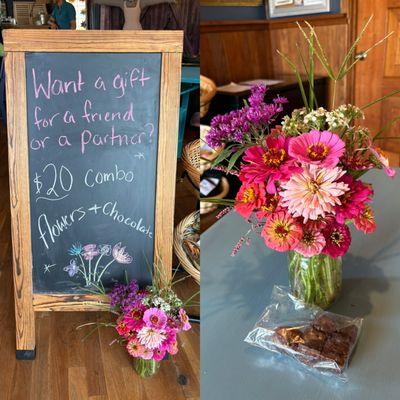 Want a gift
for a friend
or a partner?
$20 combo
Flowers + Chocolate